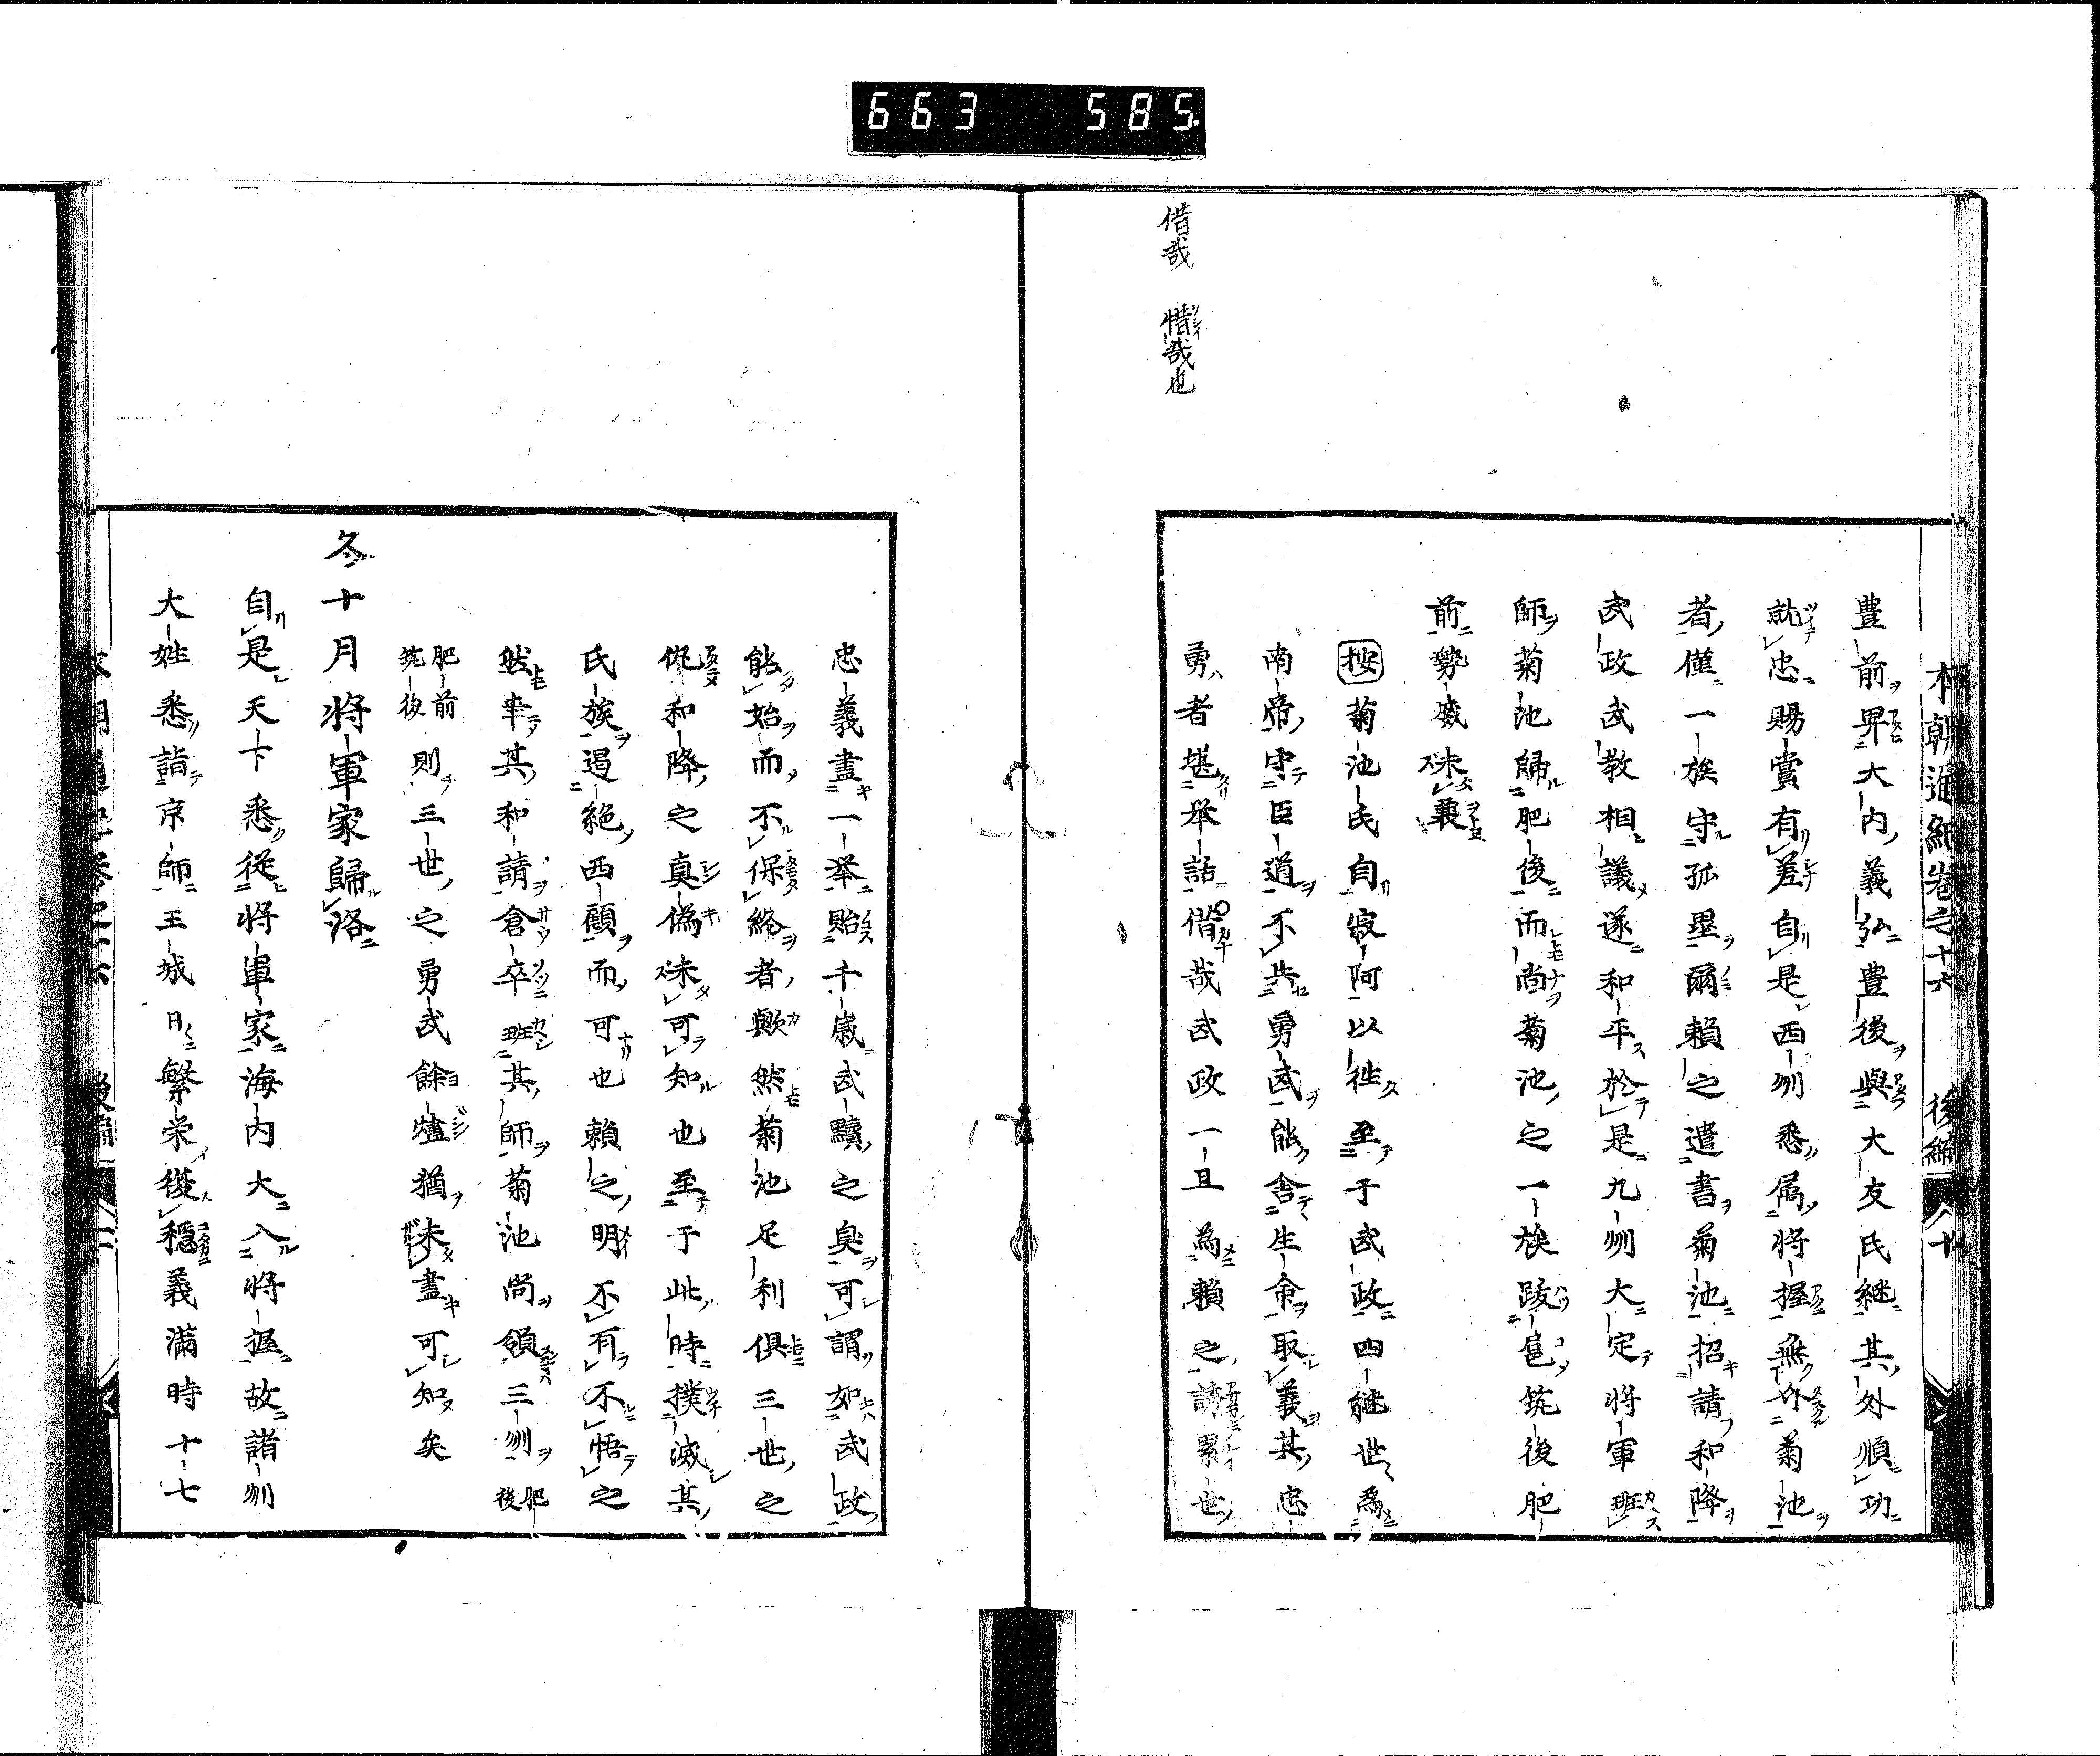 663 585
借哉 惜哉也
本朝通紀巻之十六 後編 八十
豊前ヲ畀大内義弘ニ豊後ヲ與大友氏継其外順功ニ
就忠ニ賜賞有差自是西州悉属将握無外菊池ヲ
者僅ニ一族守孤塁ヲ爾頼之遣書菊池ニ招請和降ヲ
武政武教相議遂ニ和平ス於是九州大ニ定テ将軍班
師ヲ菊池歸肥後ニ而尚菊池之一族跋扈筑後肥
前ニ勢威未衰
按菊池氏自寂阿以往至于武政四継世為
南帝守臣道ヲ不共勇武ヲ能舎生命ヲ取義其忠
勇者堪挙話偕哉武政一旦為頼之誘累世
忠義盡一挙貽千歳武黷之臭ヲ可謂如武政
能始而不保終ヲ者歟然菊池足利倶三世之
仇和降之真偽未可知也至于此時撲滅其
氏族ヲ遏絶西顧ヲ而可也頼之明不有不悟之
然率其和請ヲ倉卒班其師ヲ菊池尚領三州ヲ肥後
肥前筑後則三世之勇武餘燼猶未盡可知矣
冬十月将軍家歸洛ニ
自是天下悉従将軍家海内大ニ入将握ニ故諸州
大姓悉詣京師ニ王城日ニ繁栄従穏義満時十七